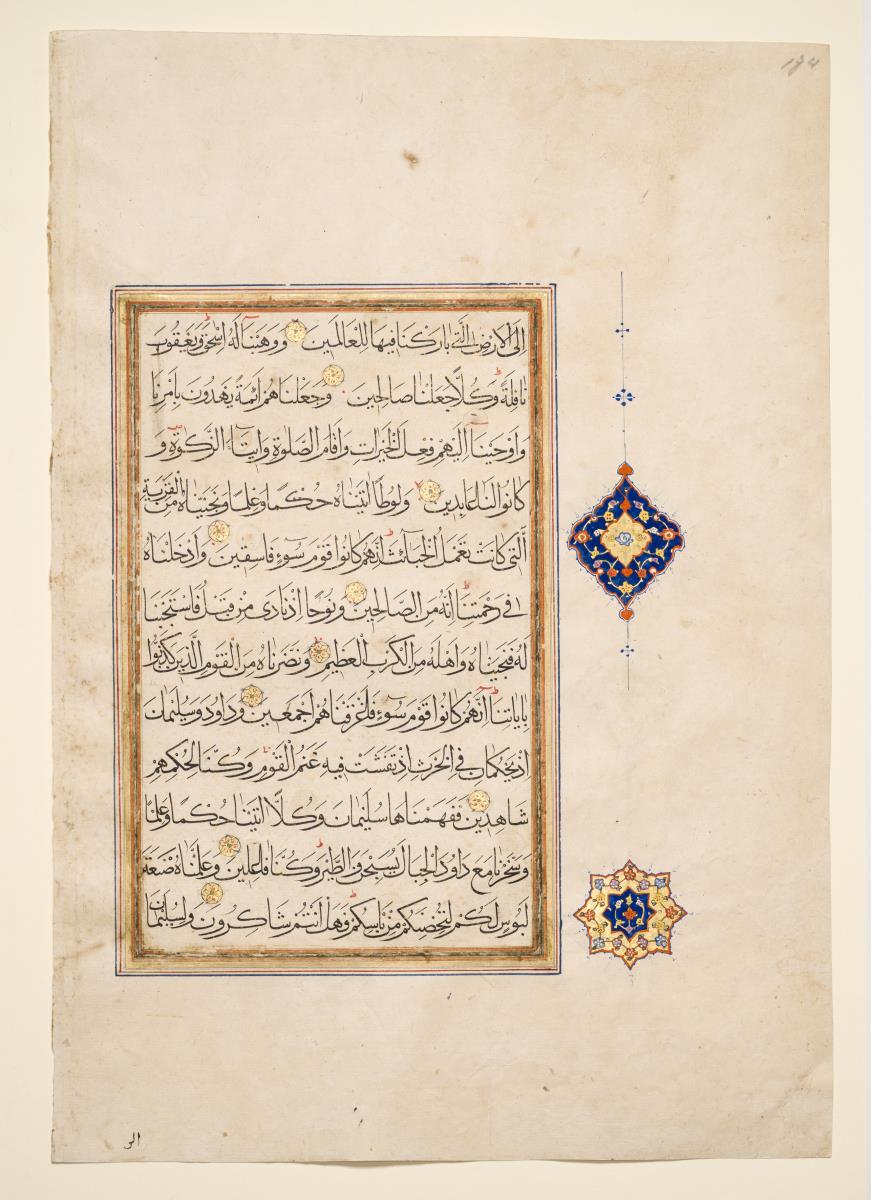 اِلَى الْاَرْضِ الَّتِي بَارَكْنَا فِيهَا لِلْعَالَمِينَ وَوَهَبْنَا لَهُ اِسْحٰقَ وَيَعْقُوبَ
نَافِلَةً وَكُلًّا جَعَلْنَا صَالِحِينَ وَجَعَلْنَاهُمْ اَئِمَّةً يَهْدُونَ بِاَمْرِنَا
وَاَوْحَيْنَا اِلَيْهِمْ فِعْلَ الْخَيْرَاتِ وَاِقَامَ الصَّلٰوةِ وَاِيتَاءَ الزَّكٰوةِ وَ
كَانُوا لَنَا عَابِدِينَ وَلُوطًا اٰتَيْنَاهُ حُكْمًا وَعِلْمًا وَنَجَّيْنَاهُ مِنَ الْقَرْيَةِ
الَّتِي كَانَتْ تَعْمَلُ الْخَبَائِثَ اِنَّهُمْ كَانُوا قَوْمَ سَوْءٍ فَاسِقِينَ وَاَدْخَلْنَاهُ
فِي رَحْمَتِنَا اِنَّهُ مِنَ الصَّالِحِينَ وَنُوحًا اِذْ نَادَى مِنْ قَبْلُ فَاسْتَجَبْنَا
لَهُ فَنَجَّيْنَاهُ وَاَهْلَهُ مِنَ الْكَرْبِ الْعَظِيمِ وَنَصَرْنَاهُ مِنَ الْقَوْمِ الَّذِينَ كَذَّبُوا
بِاٰيَاتِنَا اِنَّهُمْ كَانُوا قَوْمَ سَوْءٍ فَاَغْرَقْنَاهُمْ اَجْمَعِينَ وَدَاوُدَ وَسُلَيْمَانَ
اِذْ يَحْكُمَانِ فِي الْحَرْثِ اِذْ نَفَشَتْ فِيهِ غَنَمُ الْقَوْمِ وَكُنَّا لِحُكْمِهِمْ
شَاهِدِينَ فَفَهَّمْنَاهَا سُلَيْمَانَ وَكُلًّا اٰتَيْنَا حُكْمًا وَعِلْمًا
وَسَخَّرْنَا مَعَ دَاوُدَ الْجِبَالَ يُسَبِّحْنَ وَالطَّيْرَ وَكُنَّا فَاعِلِينَ وَعَلَّمْنَاهُ صَنْعَةَ
لَبُوسٍ لَكُمْ لِتُحْصِنَكُمْ مِنْ بَاْسِكُمْ فَهَلْ اَنْتُمْ شَاكِرُونَ وَلِسُلَيْمَانَ
الر